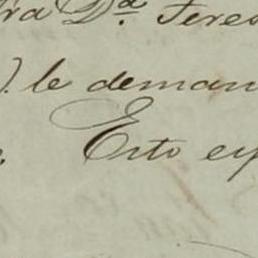 ra D.ª Teres
). le deman
Esto ex